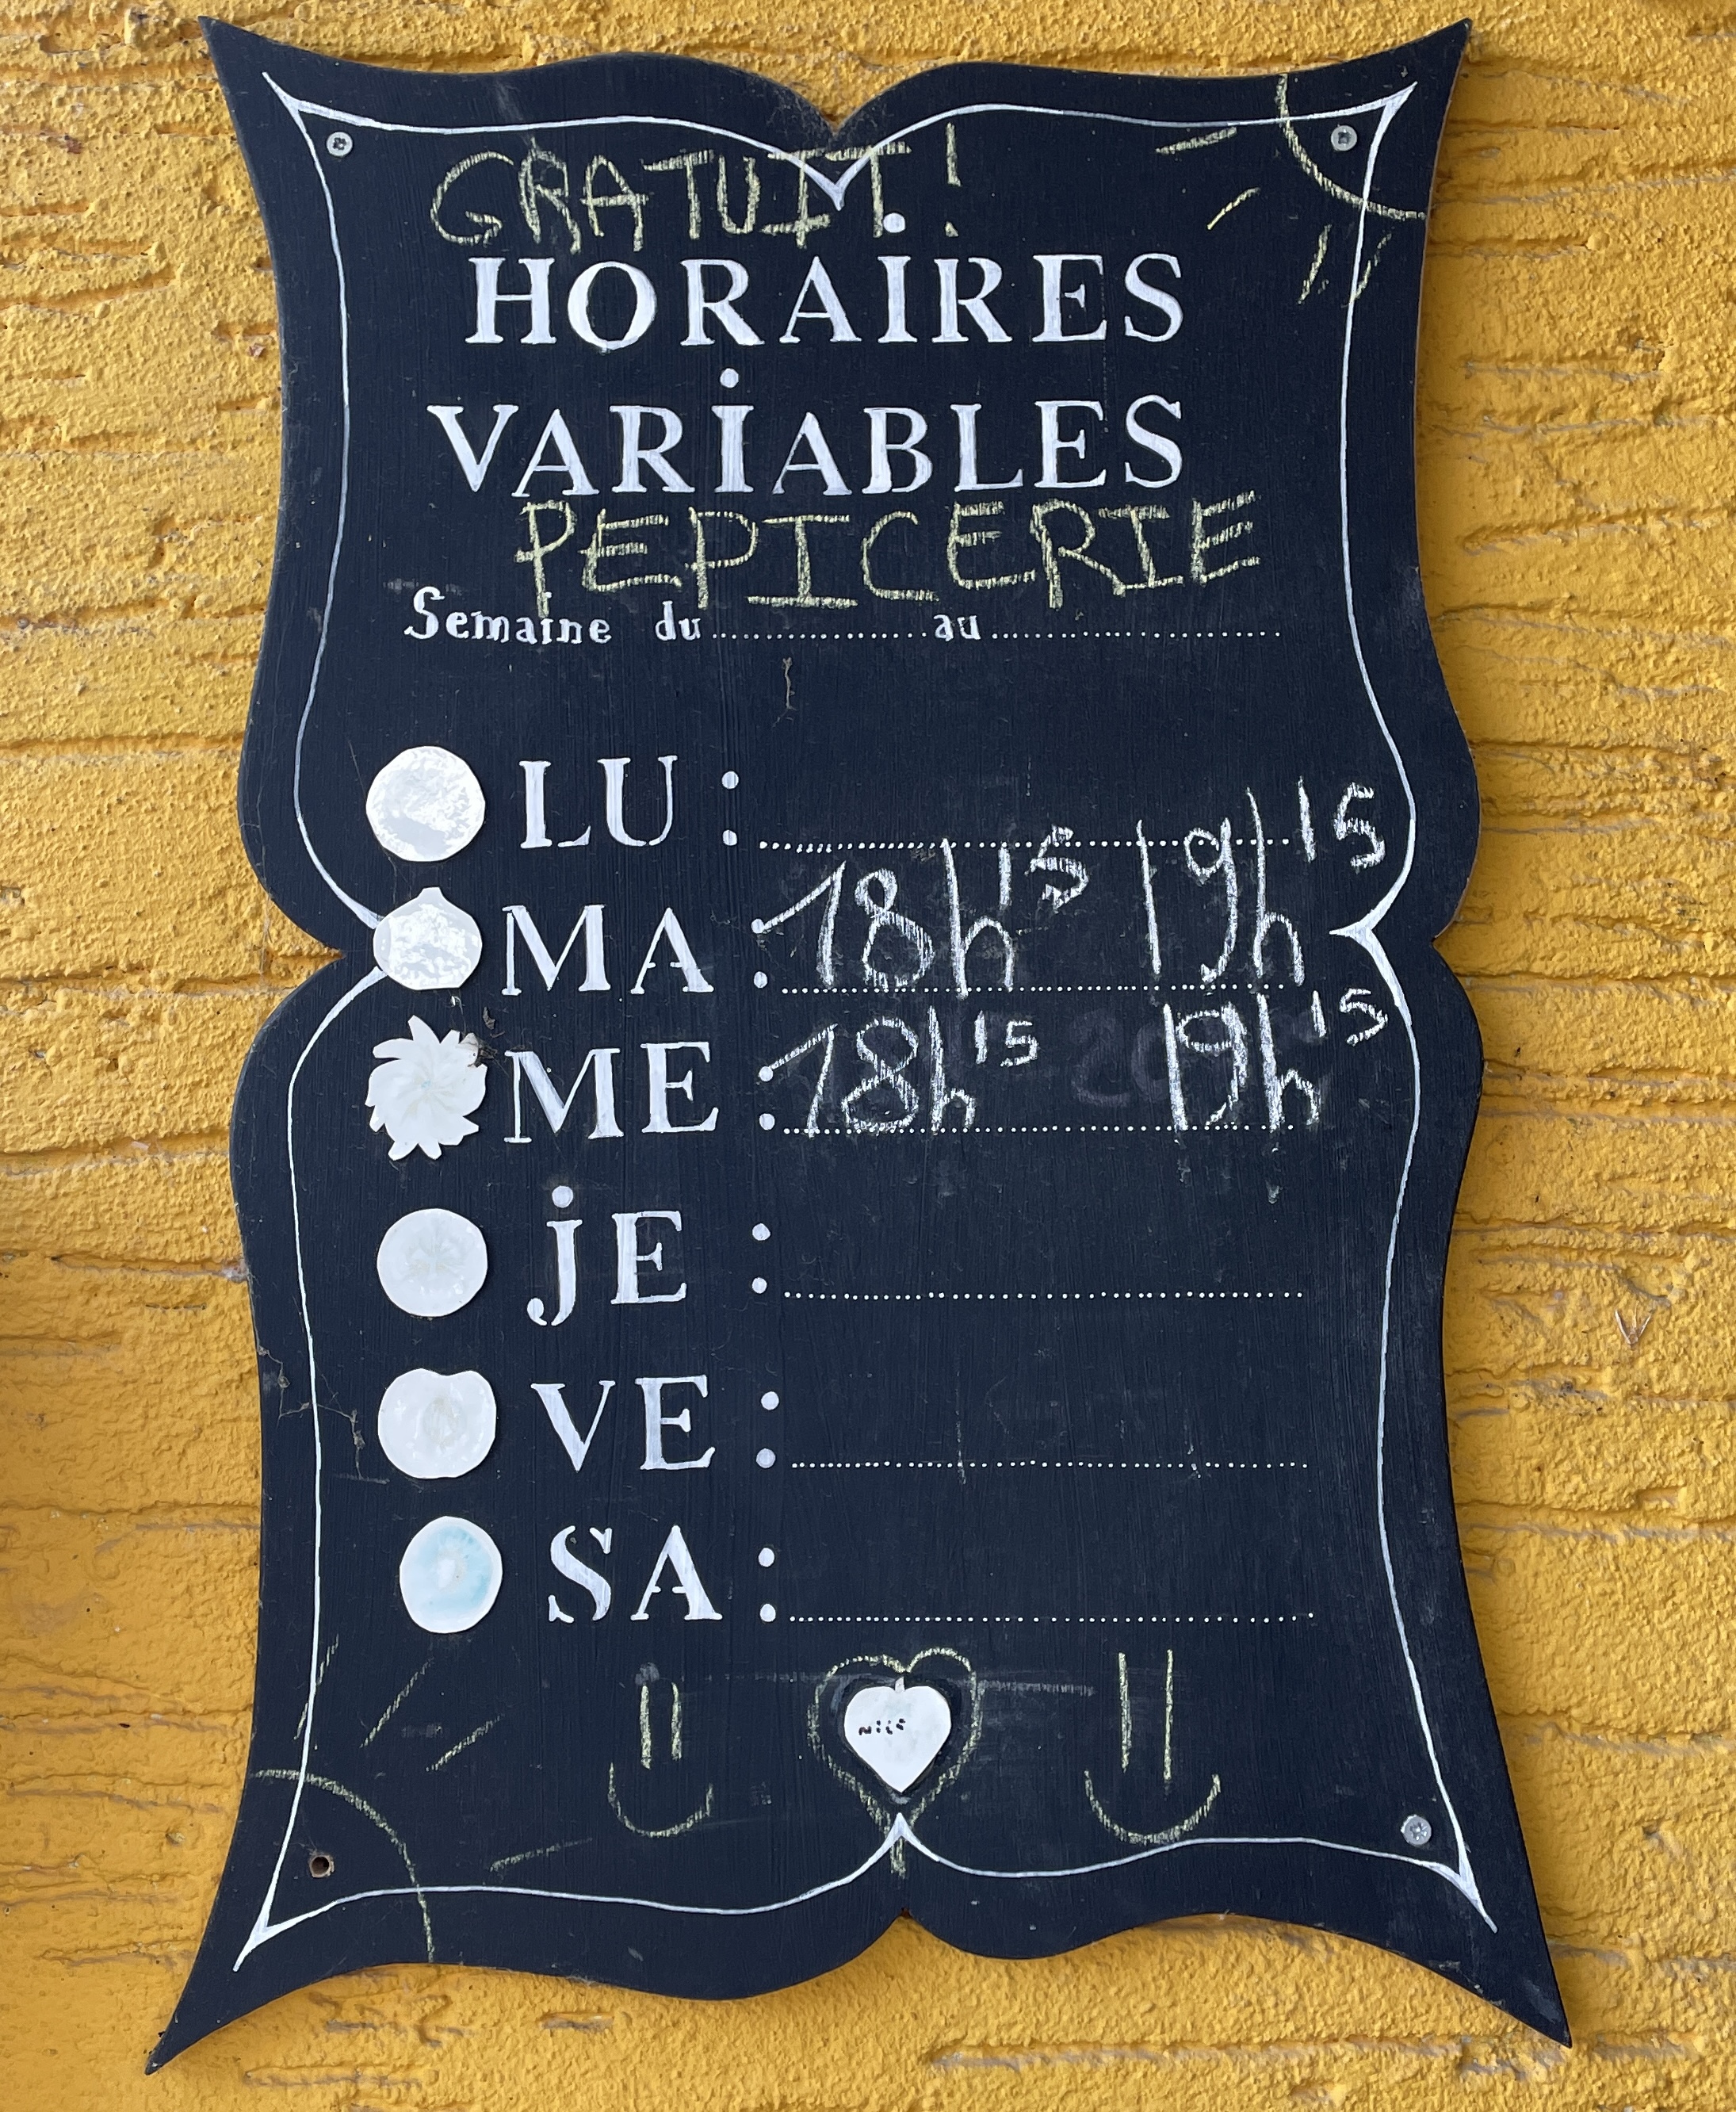 GRATUIT !
HORAiRES
VARiABLES
PEPICERIE
Semaine du .................. au ..............................
LU : ........................................
MA : 18h15 19h15
ME : 18h15 19h15
jE : ........................................
VE : ........................................
SA : ........................................